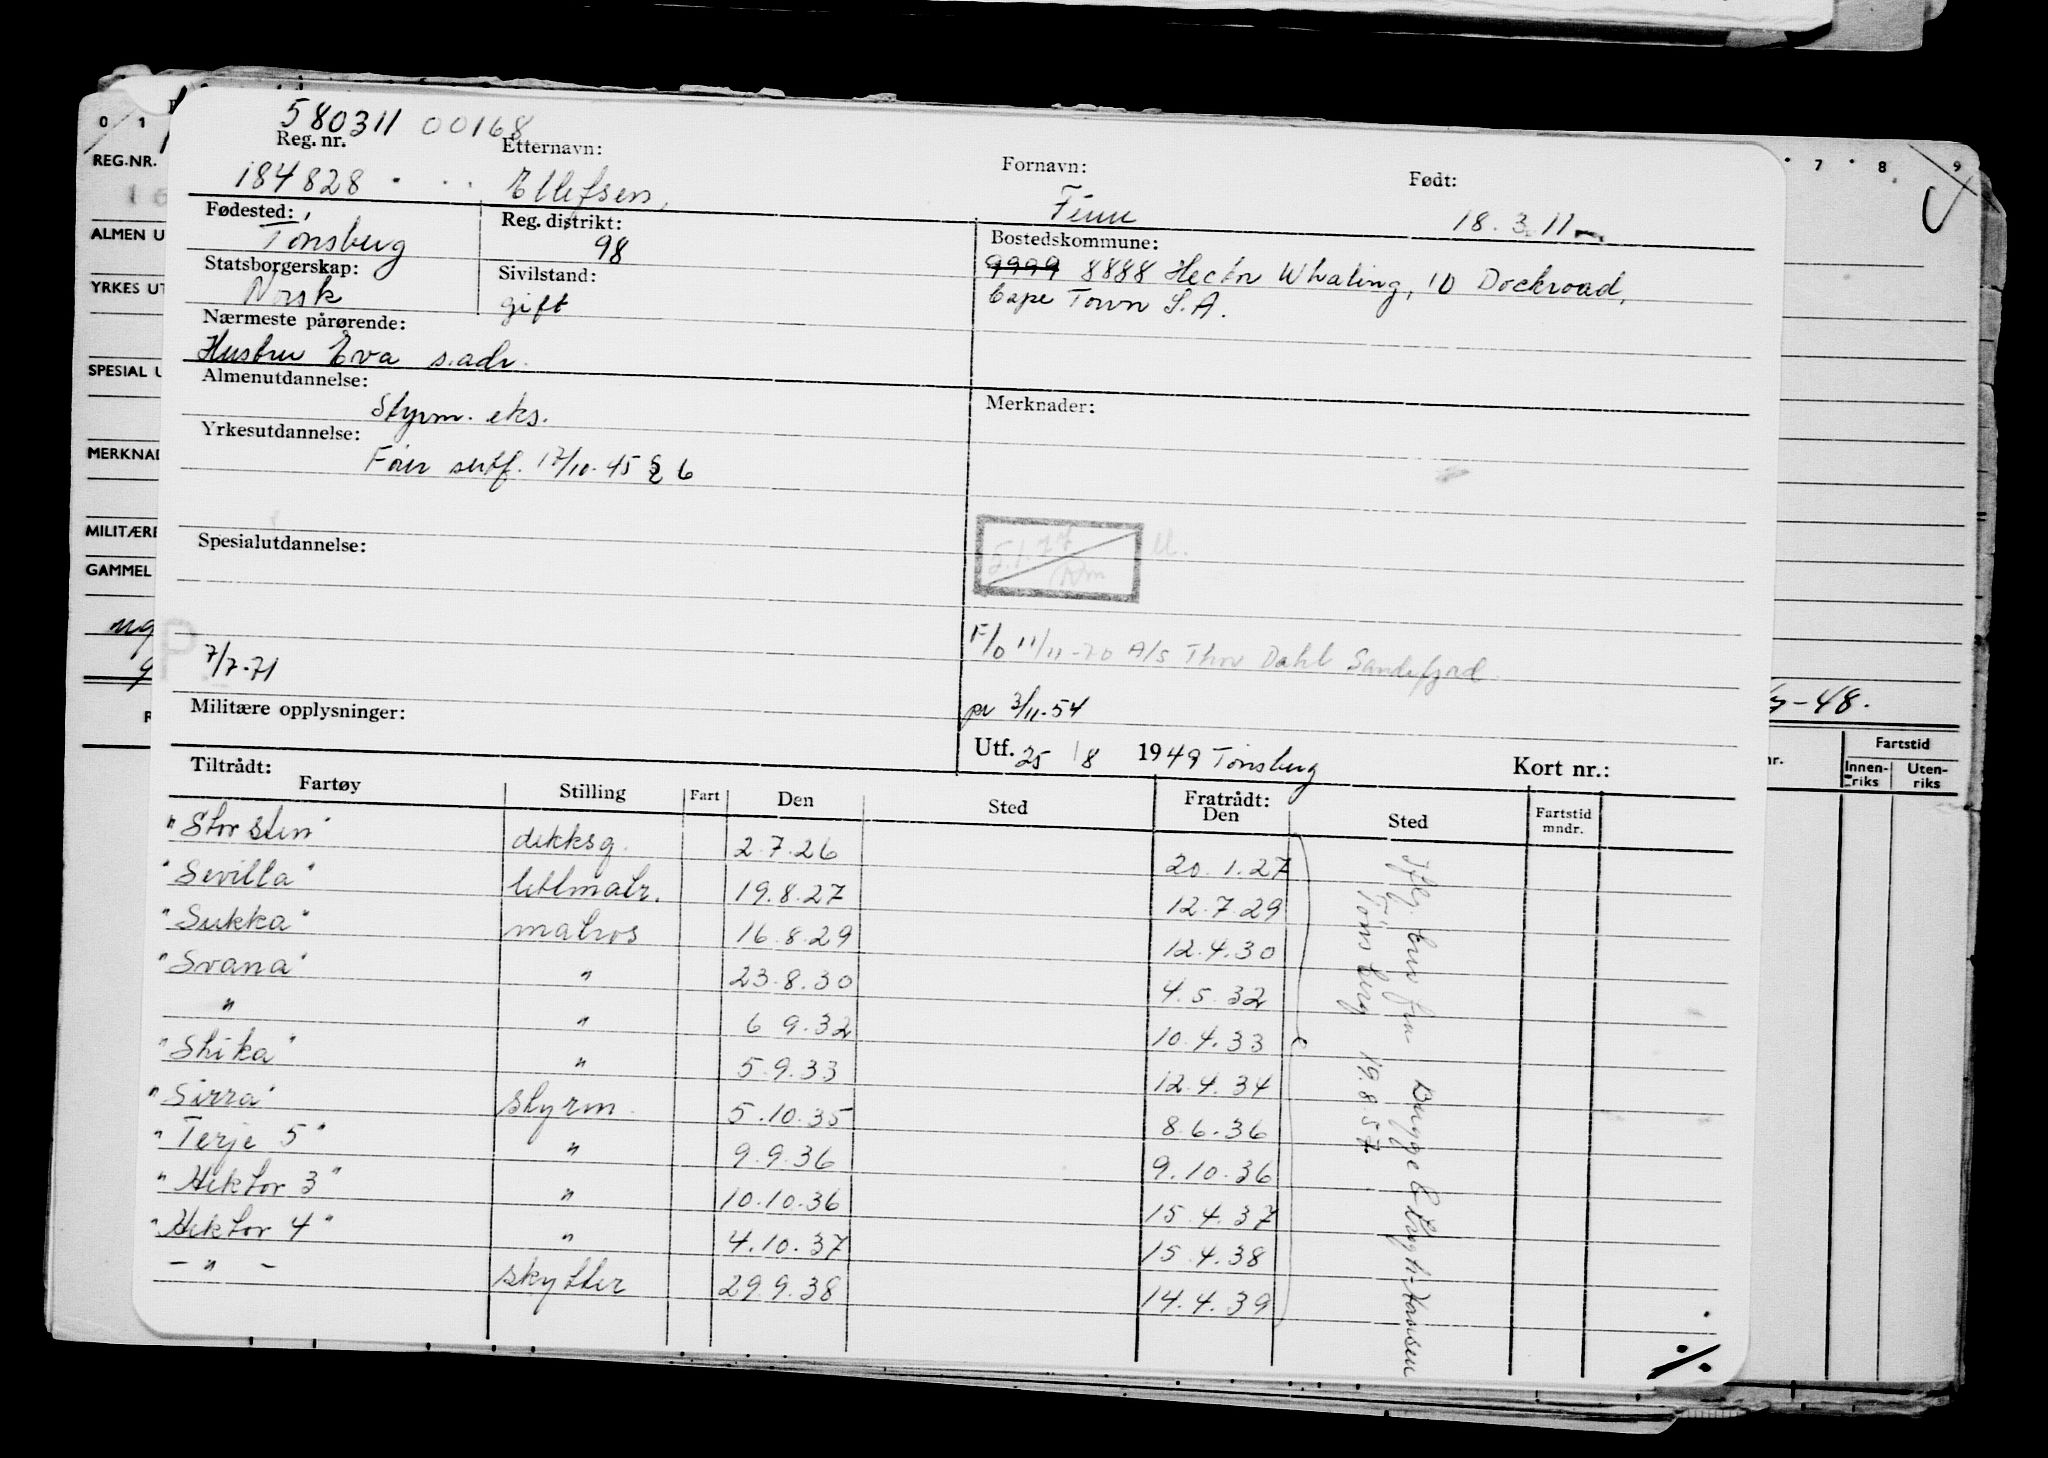 580311 00168
Reg. nr. Etternavn: Fornavn: Født:
184828 Ellefsen, Finn 18.3.11
Fødested: Reg. distrikt: Bostedskommune:
Tönsberg 98 9999 8888 Hector Whaling, 10 Dockroad,
Statsborgerskap: Sivilstand:
Norsk gift Cape Town S.A.
Nærmeste pårørende:
Hustru Eva s.adr.
Almenutdannelse: Merknader:
Styrm. eks.
Yrkesutdannelse:
sertf. 17/10-45 § 6
5.1.77
Spesialutdannelse:
F/o 11/11-70 A/S Thor Dahl Sandefjord
7/7-71
Militære opplysninger: pr 3/11-54
Utf. 25/8 1949 Tönsberg Kort nr.:
Tiltrådt: Fratrådt:
Fartøy Stilling Fart Den Sted Den Sted Fartstid mndr.
"Storsten" dekksg. 2.7.26 20.1.27
"Sevilla" lettmatr. 19.8.27 12.7.29
"Sukka" matros 16.8.29 12.4.30
"Svana" " 23.8.30 4.5.32
" " 6 9.32 10.4.33
"Shika" " 5.9.33 12.4.34
"Sirra" styrm. 5.10.35 8.6.36
"Terje 5" " 9.9.36 9.10.36
"Hektor 3" " 10.10.36 15.4.37
"Hektor 4" " 4.10.37 15.4.38
- " - skytter 29.9.38 14.4.39
Iflg. brev fra Bugge & Krogh-Hansen
Tönsberg 19.8.57
%
0 1
REG.NR.
ALMEN U
YRKES UT
SPESIAL U
MERKNAD
MILITÆRE
GAMMEL
7 8 9
-48.
nr. Fartstid
Innen-riks Uten-riks